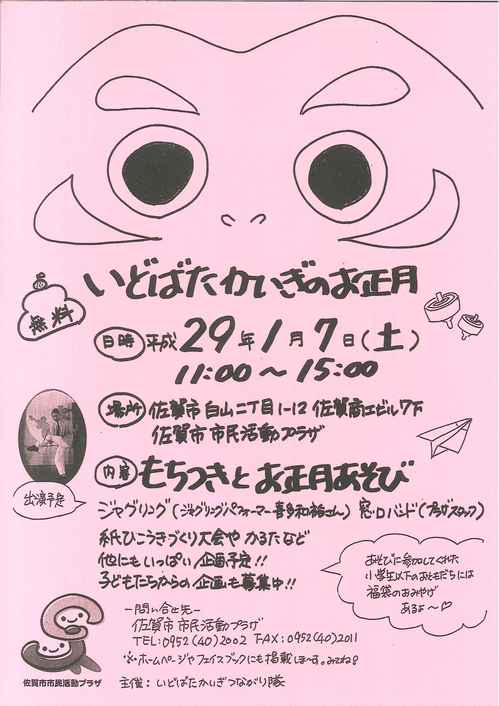 いどばたかいぎのお正月
無料
日時 平成29年1月7日(土)
11:00~15:00
場所 佐賀市白山二丁目1-12 佐賀商工ビル7F
佐賀市市民活動プラザ
内容 もちつきとお正月あそび
出演予定
ジャグリング(ジャグリングパフォーマー喜多和裕さん) 窓・Dバンド(プラザスタッフ)
紙ひこうきづくり大会やかるたなど
他にもいっぱい企画予定!!
子どもたちからの企画も募集中!!
あそびに参加してくれた
小学生以下のおともだちには
福袋のおみやげ
あるよ~♡
ー問い合せ先ー
佐賀市市民活動プラザ
TEL:0952(40)2002 FAX:0952(40)2011
※ホームページやフェイスブックにも掲載しま~す。みてね8
佐賀市市民活動プラザ
主催:いどばたかいぎつながり隊